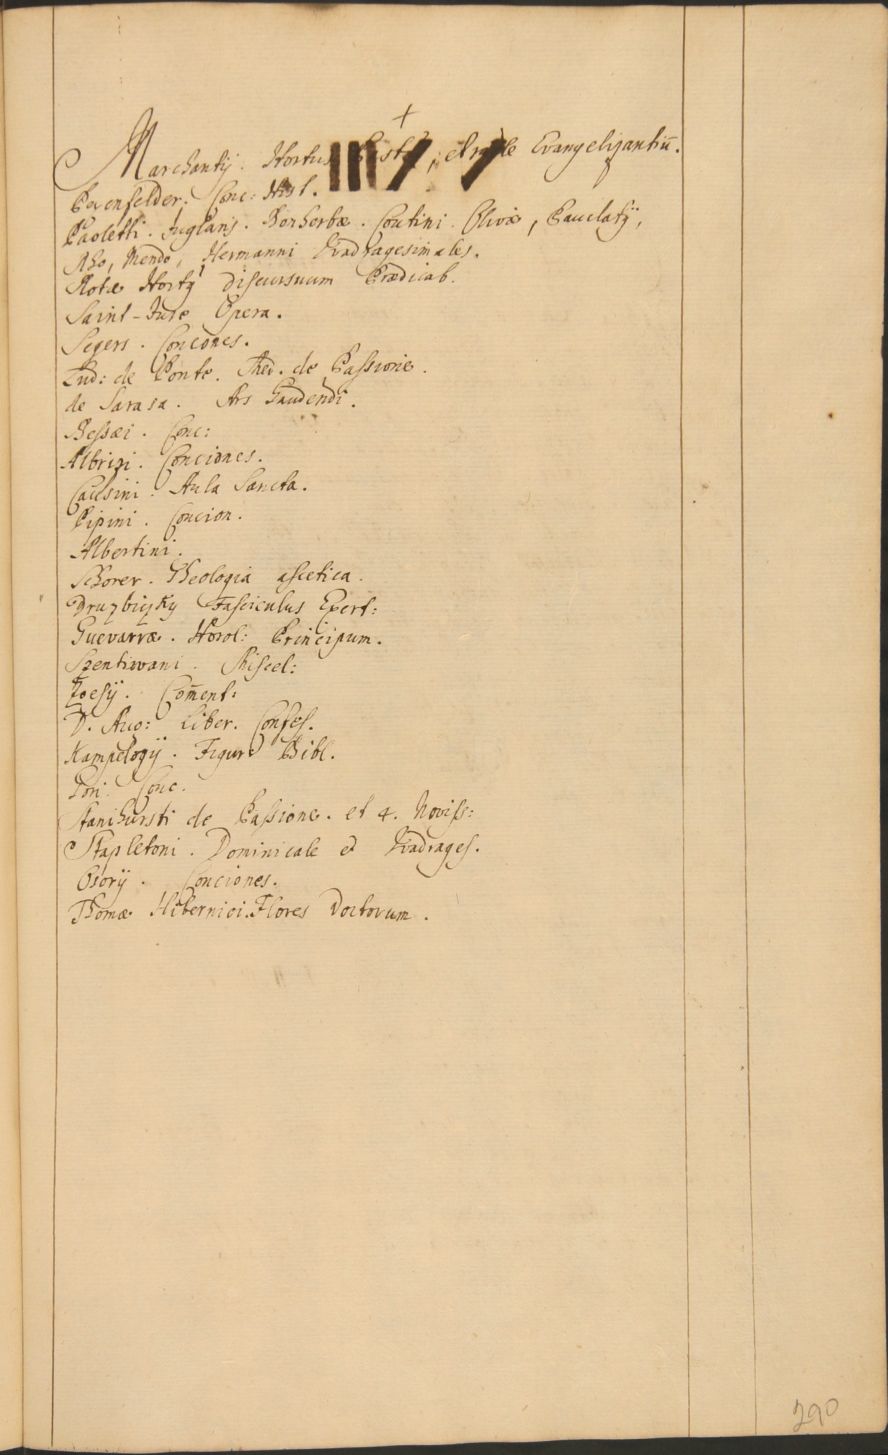 +
Marchantij. Hortus Past: , et Evangelizantiū.
Pexenfelder. Conc: Hist.
Paoletti. Juglaris. Bonherbæ. Contini. Olivæ, Pauclatij,
Rho, Mendo, Hermanni Quadragesimales.
Rotæ Hortj discursuum Prædicab.
Saint-Jure Opera.
Segers. Conciones.
Lud: de Ponte. Med. de Passione.
de Sarasa. Ars Gaudendi.
Bessæi. Conc:
Albrizi. Conciones.
Caussini. Aula Sancta.
Pipini. Concion.
Albertini.
Schorer. Theologia ascetica.
Druzbiczky Fasciculus Exerc:
Guevarræ. Horol: Principum.
Szentiwani. Miscel:
Zoesij. Com̄ent:
D. Aug: Liber. Confes.
Rampelogij. Figuræ Bibl.
Conc.
Stanihursti de Passione. et 4. Noviss:
Stapletoni. Dominicale et Quadrages.
Osorij. Conciones.
Thomæ Hibernici. Flores Doctorum.
290